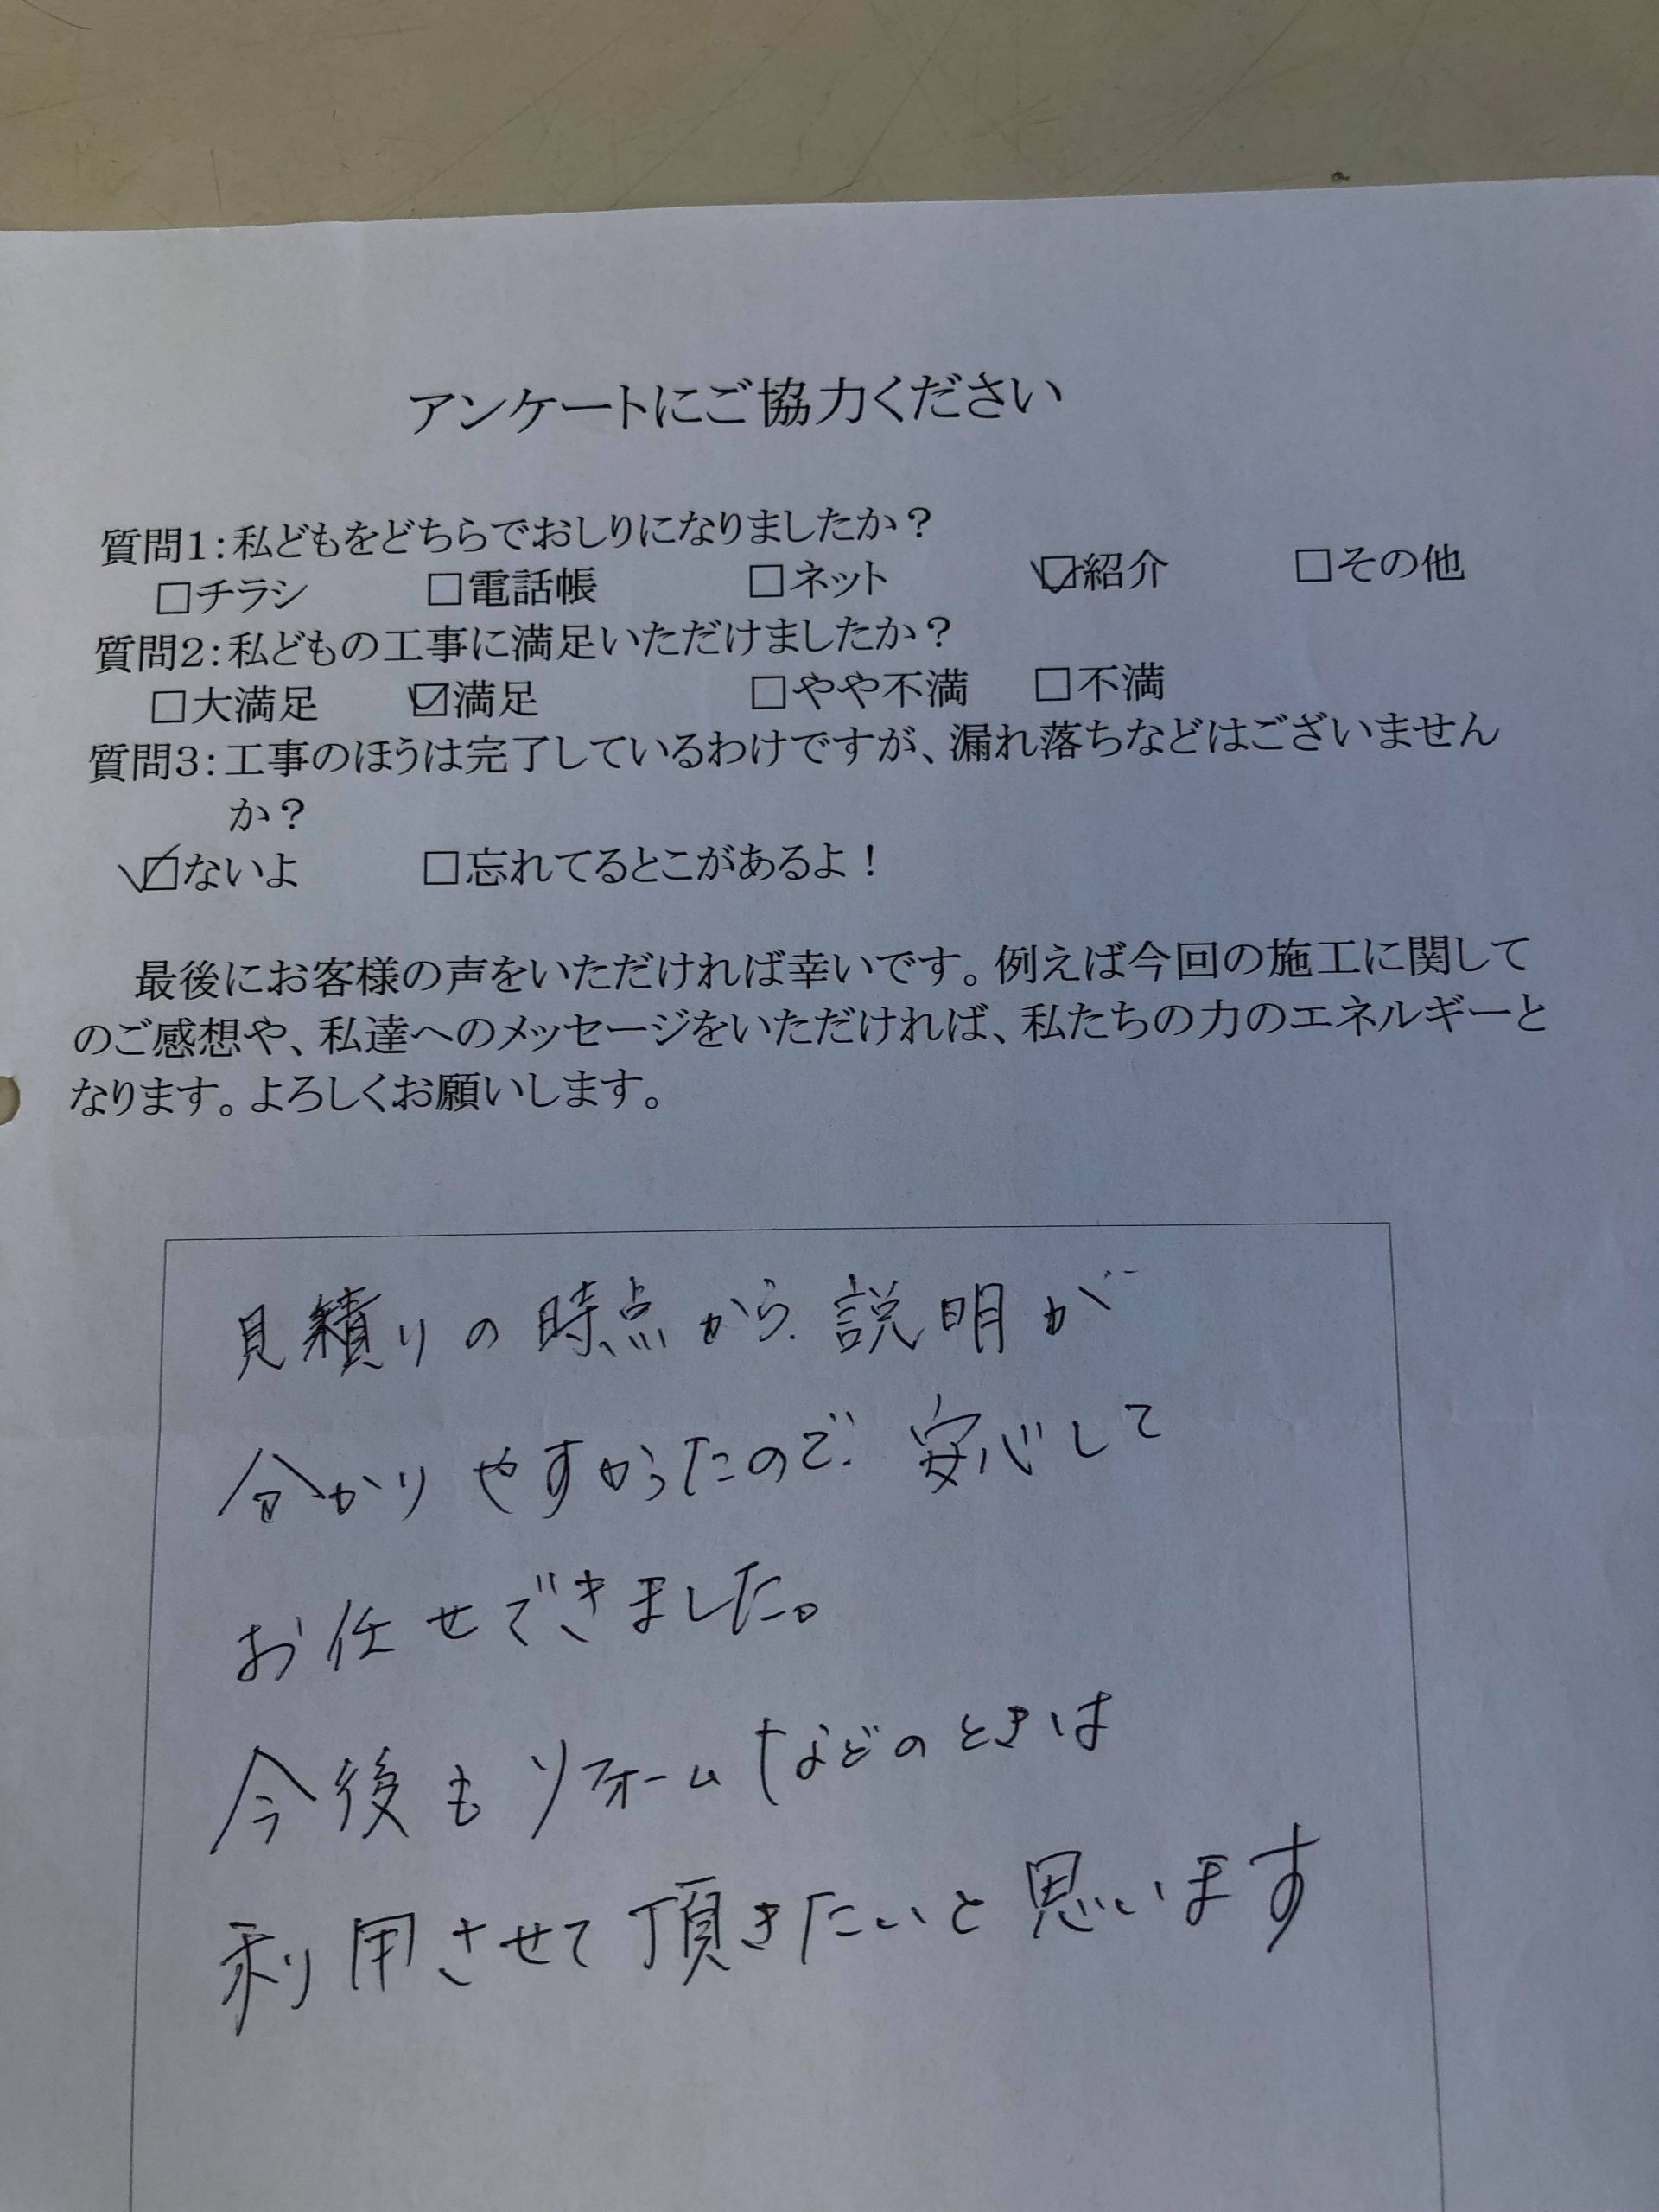 アンケートにご協力ください
質問1：私どもをどちらでおしりになりましたか？
□チラシ □電話帳 □ネット ☑紹介 □その他
質問2：私どもの工事に満足いただけましたか？
□大満足 ☑満足 □やや不満 □不満
質問3：工事のほうは完了しているわけですが、漏れ落ちなどはございません
か？
☑ないよ □忘れてるとこがあるよ！
最後にお客様の声をいただければ幸いです。例えば今回の施工に関して
のご感想や、私達へのメッセージをいただければ、私たちの力のエネルギーと
なります。よろしくお願いします。
見積りの時点から、説明が
分かりやすかったので、安心して
お任せできました。
今後もリフォームなどのときは
利用させて頂きたいと思います